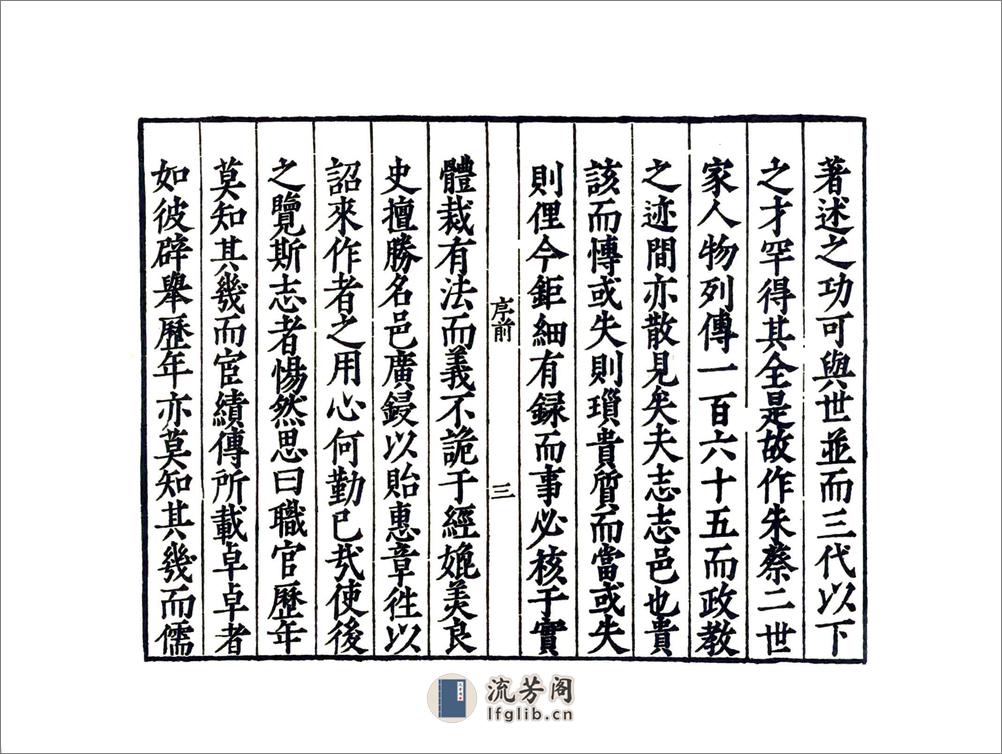 著述之功可與世並而三代以下
之才罕得其全是故作朱蔡二世
家人物列傳一百六十五而政教
之迹間亦散見矣夫志志邑也貴
該而慱或失則瑣貴質而當或失
則俚今鉅細有録而事必核于實
序前 三
體裁有法而義不詭于經娩美良
史擅勝名邑廣鋟以貽惠章徃以
詔來作者之用心何勤已㢤使後
之覽斯志者惕然思曰職官歷年
莫知其幾而宦績傳所載卓卓者
如彼辟舉歷年亦莫知其幾而儒
流芳阁
lfglib.cn